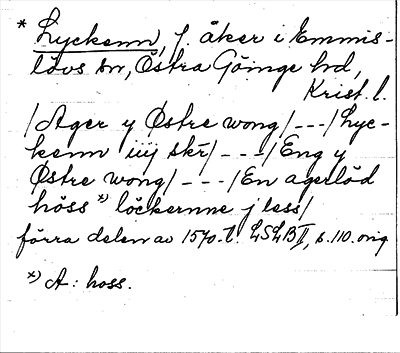 * Lyckenn, f. åker i Emmis-
lövs sn, Östra Göinge hd,
Krist. l.
/Ager y Østre wong/---/Lyc-
kenn iiij skr/---/Eng y
Østre wong/---/En agerlöd
höss *) löckernne j less/
förra delen av 1570-t. LSLB II, s. 110. orig
*) A: hoss.